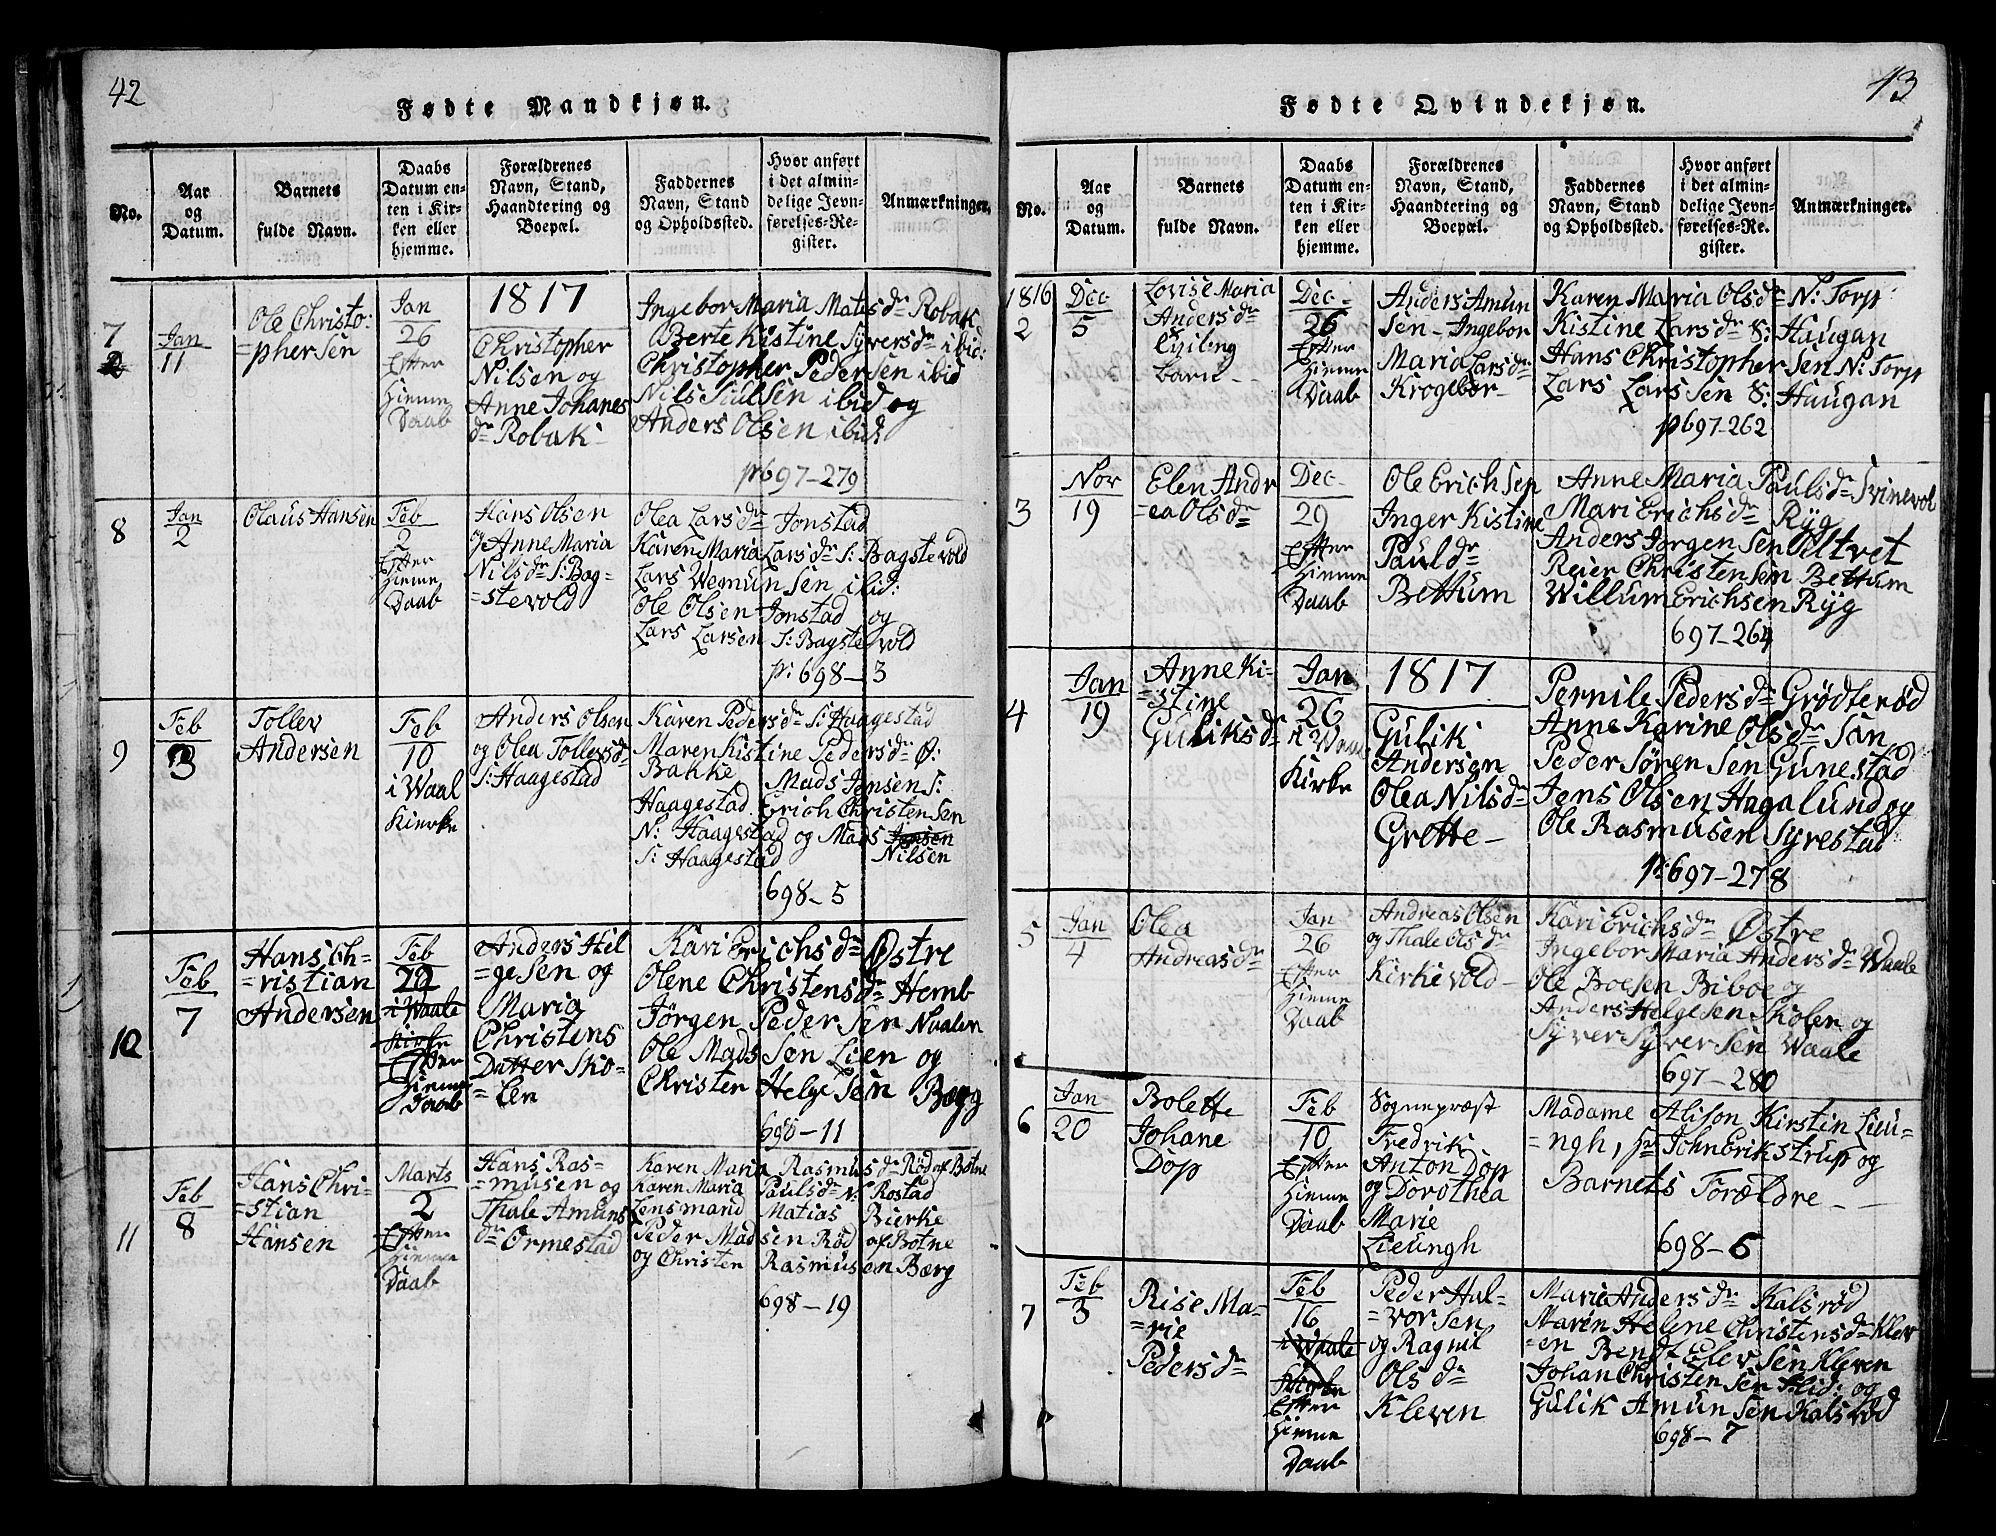 42
Fødte Mandkjøn.
No.
Aar og Datum.
Barnets fulde Navn.
Daabs Datum enten i Kirken eller hjemme.
Forældrenes Navn, Stand, Haandtering og Boepæl.
Faddernes Navn, Stand og Opholdssted.
Hvor anført i det almindelige Jevnførelses-Register.
Anmærkninger.
7
Jan
11
Ole Christo:
=phersen
Jan
26
Efter
Hieme
Daab
1817
Christopher
Nilsen og
Anne Johanes
dr Robak
Ingebor Maria Matsdr Robak
Berte Kistine Syversdr ibid:
Christopher Pedersen ibid
Nils Juulsen ibid og
Anders Olsen ibid:
p697-279
8
Jan
2
Olaus Hansen
Feb
2
Efter
Hieme
Daab
Hans Olsen
og Anne Maria
Nilsdr S: Bag=
=stevold
Olea Larsdr Jonstad
Karen Maria Larsdr S: Bagstevold
Lars Wemunsen ibid:
Ole Olsen Jonstad og
Lars Larsen S: Bagstevold
p: 698-3
9
Feb
3
Tollev
Andersen
Feb
10
i Waal
Kierke
Anders Olsen
og Olea Tollevsdr
S: Haagestad
Karen Pedersdr S: Haagestad
Maren Kistine Pedersdr Ø:
Bakke Mads Jensen S:
Haagestad Erich Christensen
N: Haagestad og Mads Jensen
S: Haagestad Nilsen
698-5
10
Feb
7
Hans Ch=
=ristian
Andersen
Feb
20
i Waale
Kirke
Efter
Hieme
Daab
Anders Hel
=gesen og
Maria
Christens
Datter Sko=
=len
Kari Erichsdr Østre
Olene Christensdr Hemb
Jørgen Pedersen Naalen
Ole Madssen Lien og
Christen Helgesen Bærg
698-11
11
Feb
8
Hans Chri=
=stian
Hansen
Marts
2
Efter
Hieme
Daab
Hans Ras=
=musen og
Thale Amuns
dr Ormestad
Karen Maria Rasmusdr Rød af Botne
Karen Maria Paulsdr N: Rostad
Lensmand Matias Bierke
Peder Madsen Rød af Botne
og Christen Rasmusen Bærg
698-19
43
Fødte Qvindekjøn.
No.
Aar og Datum.
Barnets fulde Navn.
Daabs Datum enten i Kirken eller hjemme.
Forældrenes Navn, Stand, Haandtering og Boepæl.
Faddernes Navn, Stand og Opholdssted.
Hvor anført i det almindelige Jevnførelses-Register.
Anmærkninger.
1816
2
Dec
5
Lovise Maria
Andersdr
Tviling
barn
Dec
26
Efter
Hieme
Daab
Anders Amun
sen - Ingebor
Maria Larsdr
Krogebør
Karen Maria Olsdr N: Torp
Kistine Larsdr S: Haugan
Hans Christophersen N: Torp
Lars Larssen S: Haugan
p697-262
3
Nov
19
Elen Andr
=ea Olsdr
Dec
29
Efter
Hieme
Daab
Ole Erichsen
Inger Kistine
Pauldr
Bettum
Anne Maria Paulsdr Svinevol
Mari Erichsdr Ryg
Anders Jørgensen Piltvet
Reier Christensen Bettum
Willum Erichsen Ryg
697-264
4
Jan
19
Anne Ki=
=stine
Guliksdr
Jan
26
i Waale
Kirke
1817
Gulik
Andersen
Olea Nilsdr
Grette
Pernile Pedersdr Grødterød
Anne Karine Olsdr San
Peder Sørensen Gunestad
Jens Olsen Hagalund og
Ole Rasmusen Syrestad
p: 697-278
5
Jan
4
Olea
Andreasdr
Jan
26
Efter
Hieme
Daab
Andreas Olsen
og Thale Olsdr
Kirkevold
Kari Erichsdr Østre
Ingebor Maria Andersdr Waale
Ole Boesen Biboe og
Anders Helgesen Skolen og
Syver Syversen Waale
697-280
6
Jan
20
Bolette
Johane
Dop
Feb
10
Efter
Hieme
Daab
Sognepræst
Fredrik
Anton Dop
og Dorothea
Marie
Lieungh
Madame Alison Kirstin Lieu=
=ngh, Hr John Erikstrup og
Barnets Forældre
698-6
7
Feb
3
Rise Ma=
=rie
Pedersdr
Feb
16
i Waale
Kirke
Efter
Hieme
Daab
Peder Hal=
=vorsen
og Ragnil
Olsdr
Kleven
Marie Andersdr Kalsrød
Maren Helene Christensdr Klev
=en Bendt Elevsen Kleven
Johan Christensen ibid: og
Gulik Amunsen Kalsrød
698-7